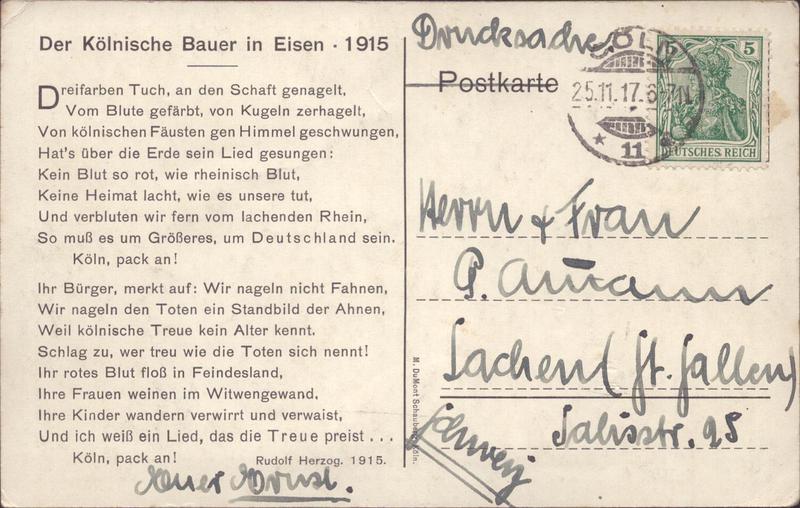 Der Kölnische Bauer in Eisen · 1915
Dreifarben Tuch, an den Schaft genagelt,
Vom Blute gefärbt, von Kugeln zerhagelt,
Von kölnischen Fäusten gen Himmel geschwungen,
Hat's über die Erde sein Lied gesungen:
Kein Blut so rot, wie rheinisch Blut,
Keine Heimat lacht, wie es unsere tut,
Und verbluten wir fern vom lachenden Rhein,
So muß es um Größeres, um Deutschland sein.
Köln, pack an!
Ihr Bürger, merkt auf: Wir nageln nicht Fahnen,
Wir nageln den Toten ein Standbild der Ahnen,
Weil kölnische Treue kein Alter kennt.
Schlag zu, wer treu wie die Toten sich nennt!
Ihr rotes Blut floß in Feindesland,
Ihre Frauen weinen im Witwengewand,
Ihre Kinder wandern verwirrt und verwaist,
Und ich weiß ein Lied, das die Treue preist . . .
Köln, pack an!
Rudolf Herzog. 1915.
Euer Ernst.
M. DuMont Schauberg, Köln.
Drucksache.
Postkarte
CÖLN
25.11.17.6-7N
* 11
5
DEUTSCHES REICH
Herrn & Frau
P. Aumann
Lachen (St. Gallen)
Salisstr. 25
Schweiz